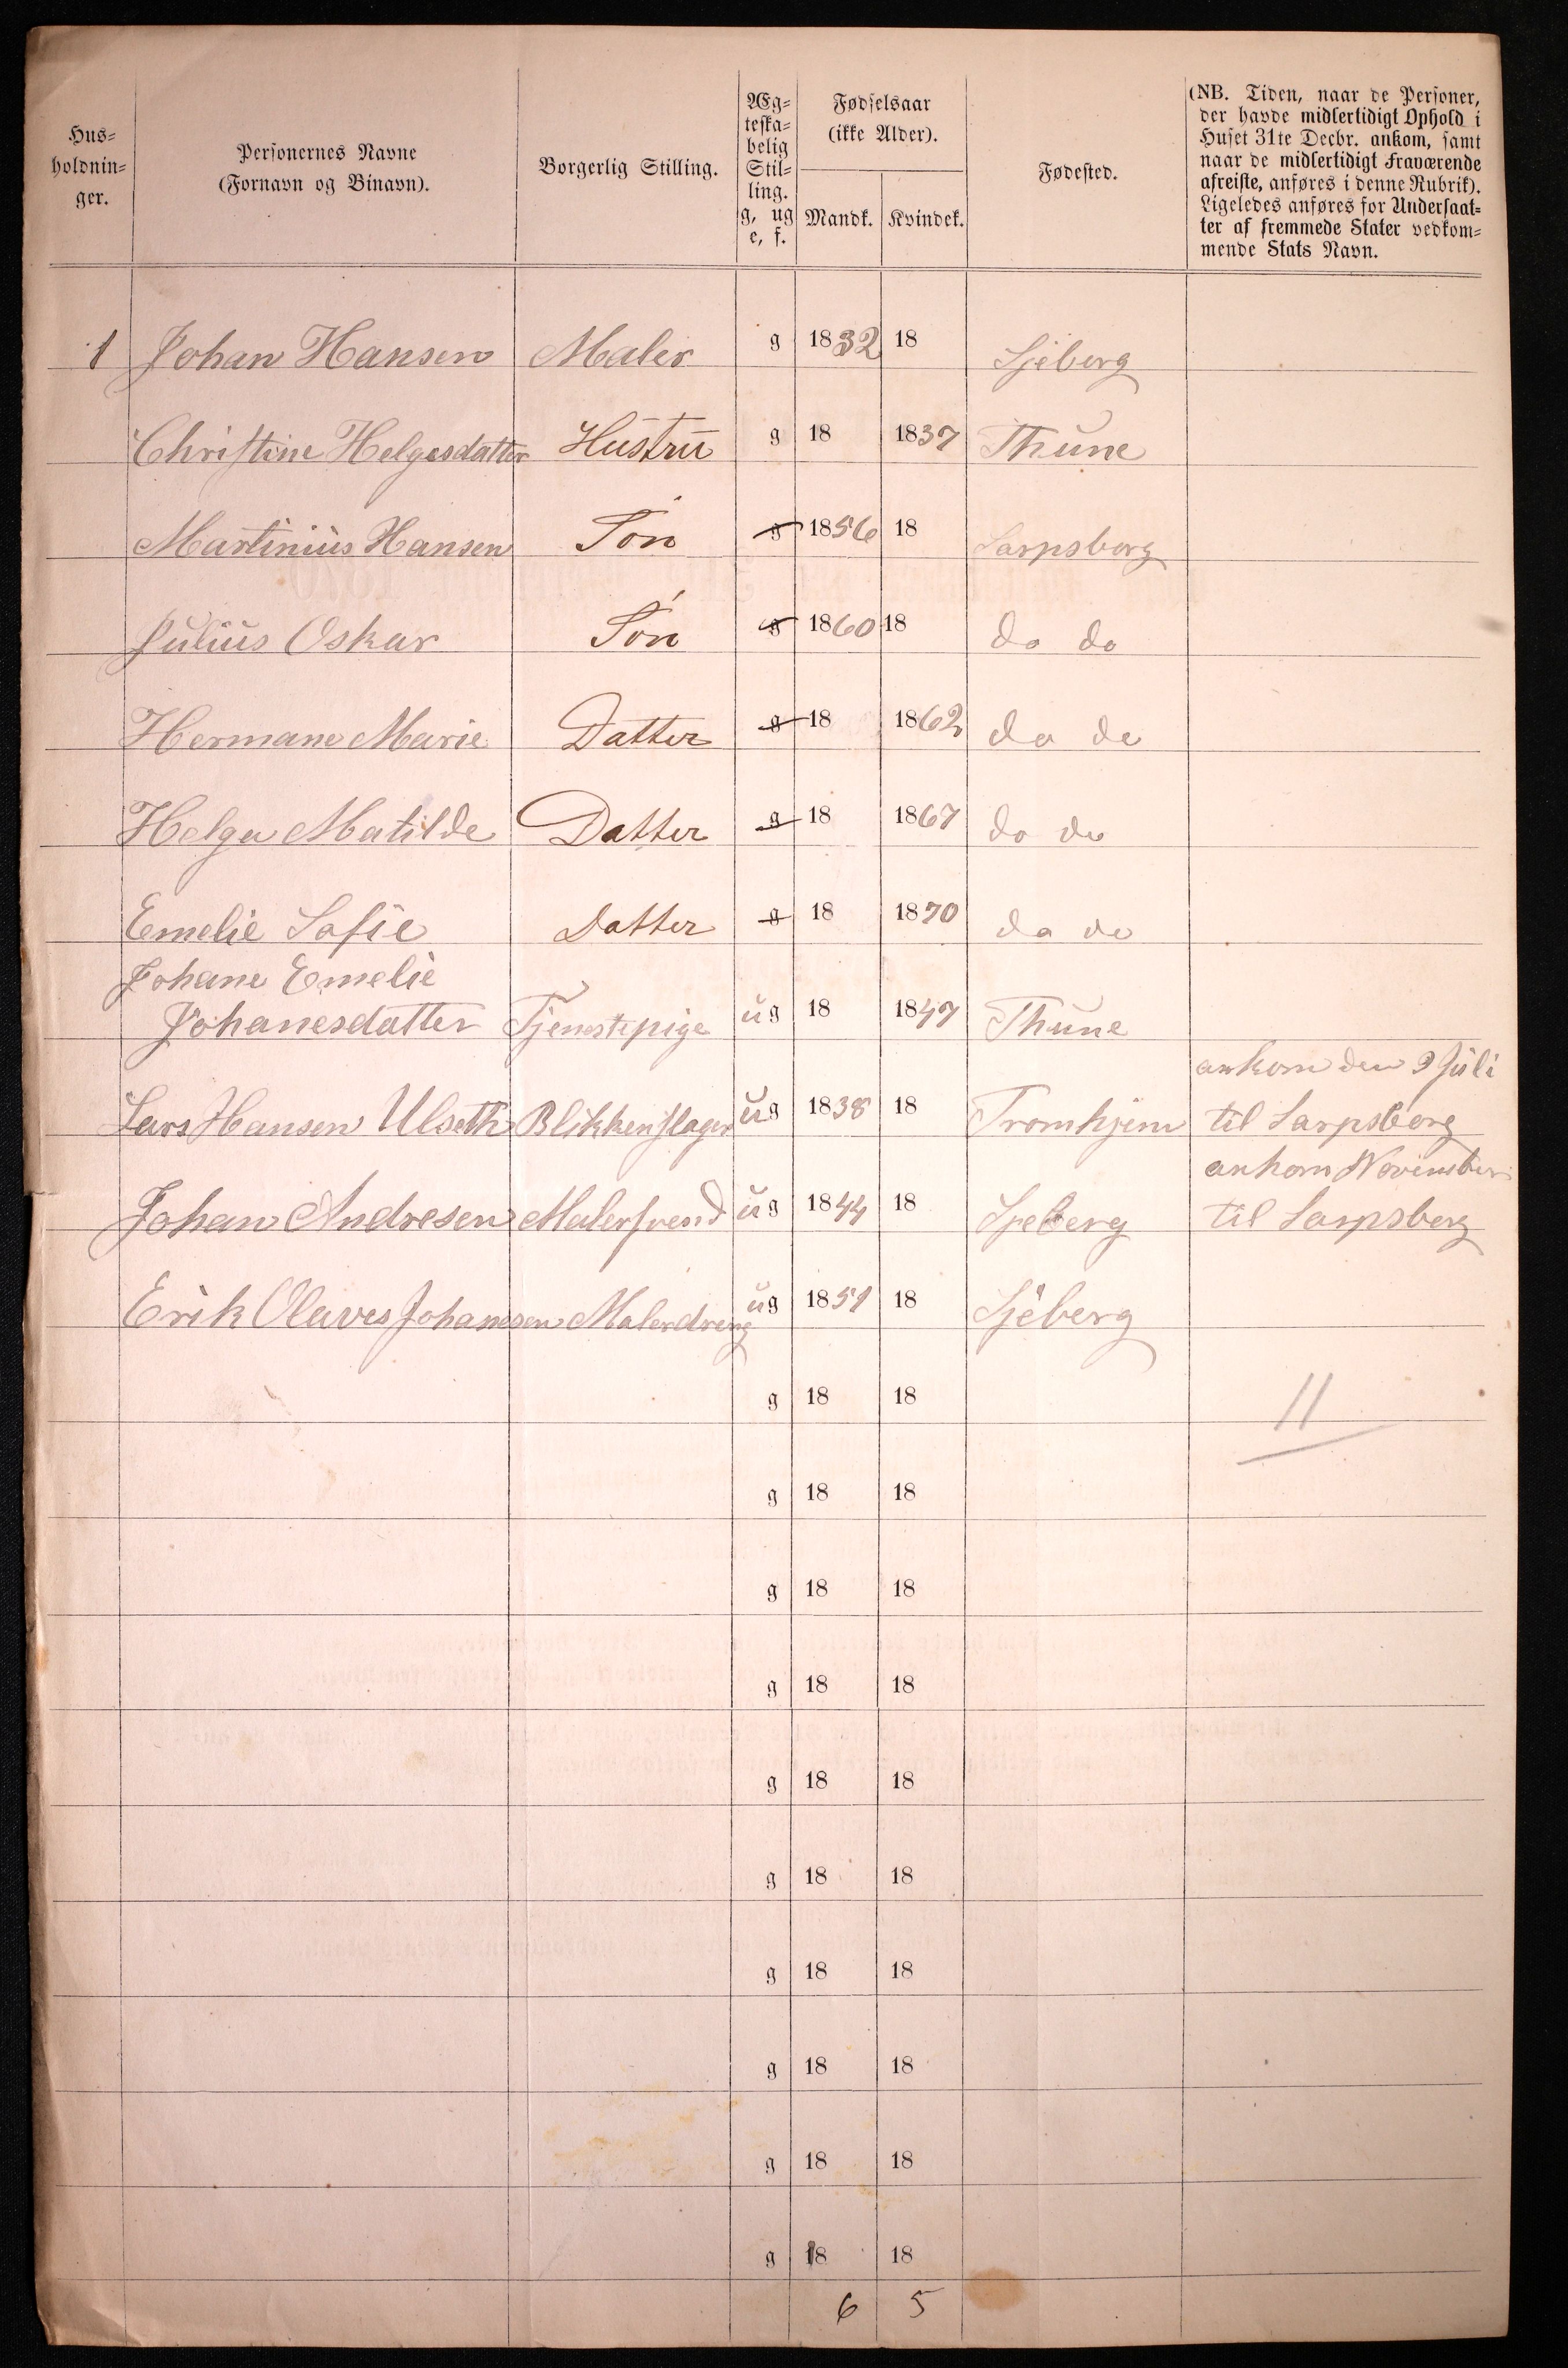 Hus=
holdnin=
ger.
Personernes Navne
(Fornavn og Binavn).
Borgerlig Stilling.
Æg=
teska=
belig
Stil=
ling.
g, ug
e, f.
Fødselsaar
(ikke Alder).
Mandk. Kvindek.
Fødested.
(NB. Tiden, naar de Personer,
der havde midlertidigt Ophold i
Huset 31te Decbr. ankom, samt
naar de midlertidigt Fraværende
afreiste, anføres i denne Rubrik).
Ligeledes anføres for Undersaat=
ter af fremmede Stater vedkom=
mende Stats Navn.
1 Johan Hansen Maler g 1832 18 Sjeberg
Christine Helgesdatter Hustru g 18 1837 Thune
Martinius Hansen Søn g 1856 18 Sarpsborg
Julius Oskar Søn g 1860 18 do do
Hermane Marie Datter g 18 1862 do do
Helga Matilde Datter g 18 1867 do do
Emelie Sofie Datter g 18 1870 do do
Johane Emelie
Johanesdatter Tjenestepige ug 18 1847 Thune
ankom den 9 Juli
Lars Hansen Ulseth Blikkenslager ug 1838 18 Tromhjem til Sarpsborg
ankom November
Johan Andresen Malersvend ug 1844 18 Sjeberg til Sarpsberg
Erik Olaves Johanesen Malerdreng ug 1851 18 Sjeberg
g 18 18 11
g 18 18
g 18 18
g 18 18
g 18 18
g 18 18
g 18 18
g 18 18
g 18 18
g 18 18
6 5